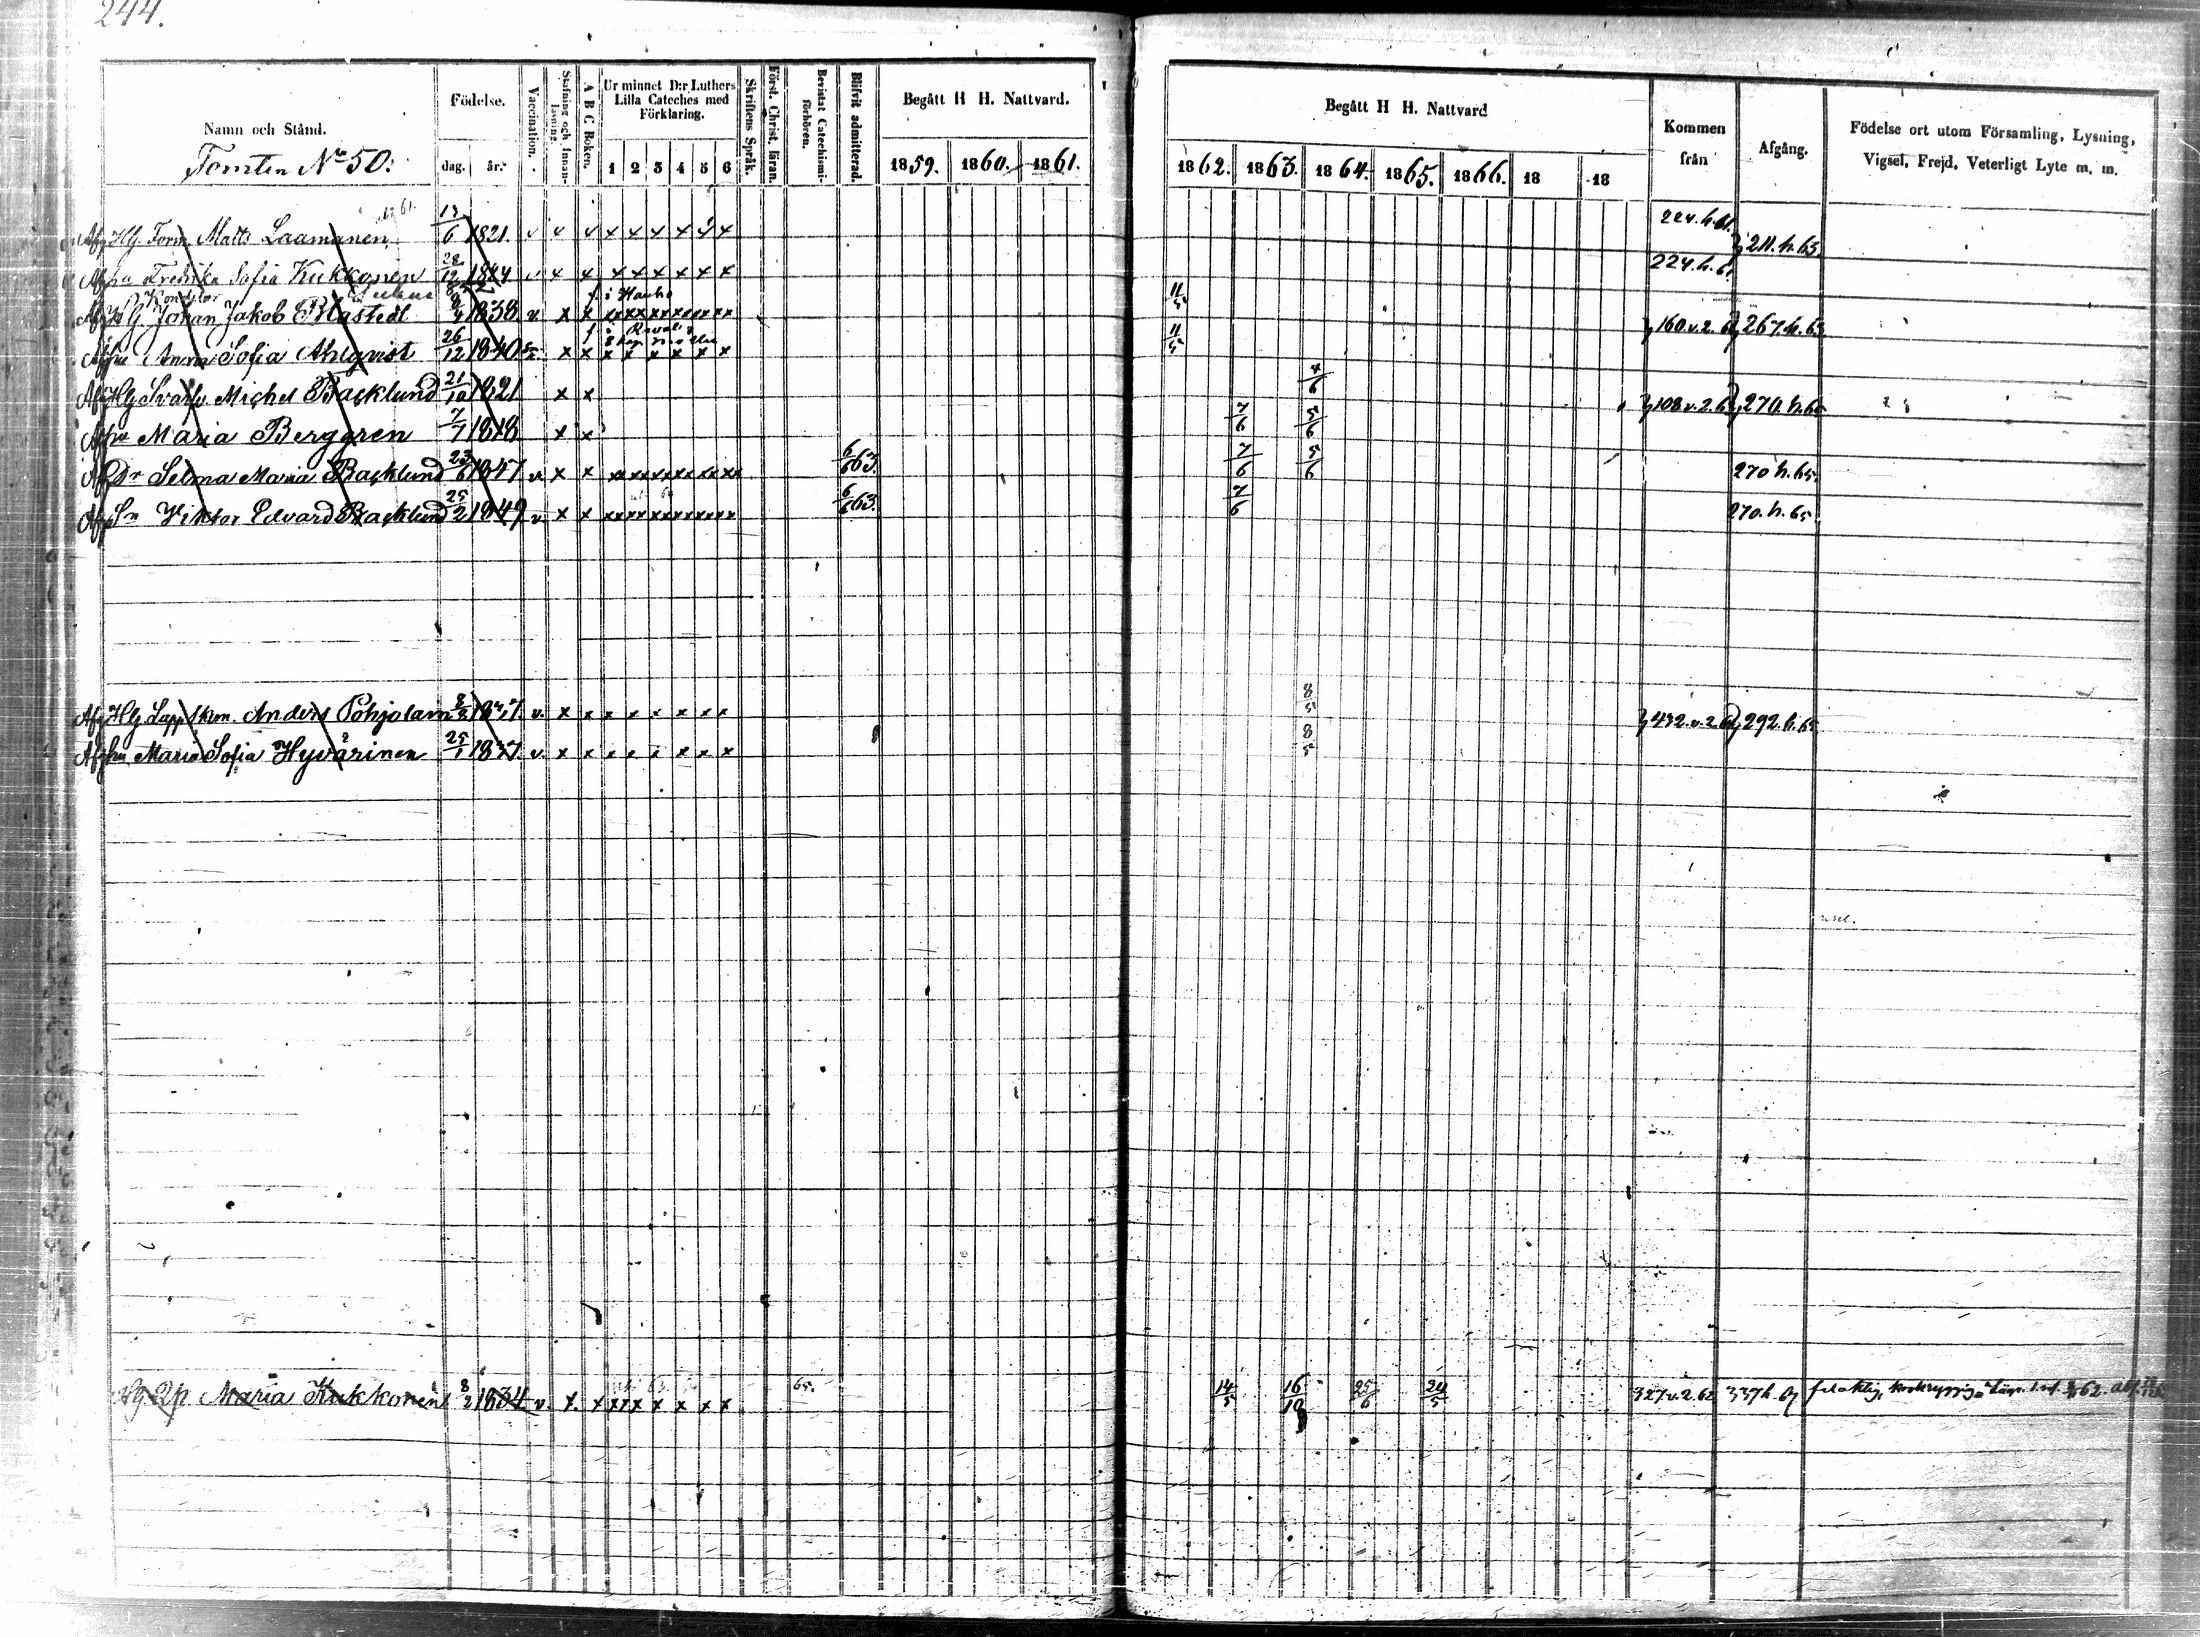 244.
Namn och Stånd.
Tomten No 50:
Födelse.
dag. år.
Vaccination.
Stafning och Innan-läsning.
A B C Boken.
Ur minnet D:r Luthers Lilla Cateches med Förklaring.
1 2 3 4 5 6
Skriftens Språk.
Först. Christ. läran.
Bevistat Catechismi-förhören.
Blifvit admitterad.
Begått H H. Nattvard.
1859. 1860. 1861.
Begått H H. Nattvard
1862. 1863. 1864. 1865. 1866. 18 18
Kommen från
Afgång.
Födelse ort utom Församling, Lysning, Vigsel, Frejd, Veterligt Lyte m. m.
Hg Form. Matts Laamanen 13/6 1821. v x v x x x x x x 224.h.61. 211.h.63.
hu Fredrika Sofia Kukkonen 28/12 1824 v x x x x x x x x 224.h.61
Konditor i Hauho
Hg Johan Jakob 8/4 1838 v. x x xx xx xx xx xx xx 11/5 160.v.2. 267.h.63
hu Anna Sofia Ahlqvist 26/12 1840 x x x x x x x x 11/5
Hg Svarfv. Michel Backlund 21/10 1821 x x 4/6 108.v.2.6 270.h.65
hu Maria Berggren 7/7 1818 x x 7/6 5/6
Dr Selma Maria Backlund 23/6 1847 v. x x xx xx xx xx xx xx 6/6 63. 7/6 5/6 270 h.65.
Sn Viktor Edvard Backlund 25/2 1849 v. x x xx xx xx xx xx xx 6/6 63. 7/6 270.h.65.
Hg Anders Pohjolain 8/3 v. x x x x x x x x 8/5 432.v.2. 292.h.65
hu Maria Sofia Hyvärinen 25/1 1837. v. x x x x x x x x 8/5
Maria Kukkonen 8/2 1834 v. x. x xx x x x x x 65. 14/5 16/10 25/6 24/5 327.v.2.62 337h.67